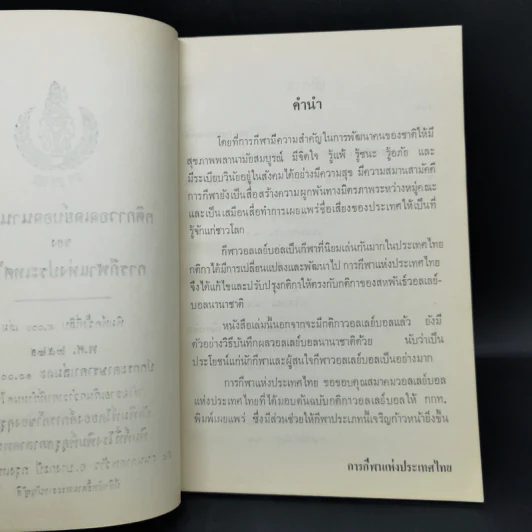 กติกาวอลเลย์บอลนานา
ของ
การกีฬาแห่งประเทศ
พ.ศ. ๒๕๒๕
คำนำ
โดยที่การกีฬามีความสำคัญในการพัฒนาคนของชาติให้มี
สุขภาพพลานามัยสมบูรณ์ มีจิตใจ รู้แพ้ รู้ชนะ รู้อภัย และ
มีระเบียบวินัยอยู่ในสังคมได้อย่างมีความสุข มีความสมานสามัคคี
การกีฬายังเป็นสื่อสร้างความผูกพันทางมิตรภาพระหว่างหมู่คณะ
และเป็นเสมือนสื่อทำการเผยแพร่ชื่อเสียงของประเทศให้เป็นที่
รู้จักแก่ชาวโลก
กีฬาวอลเลย์บอลเป็นกีฬาที่นิยมเล่นกันมากในประเทศไทย
กติกาได้มีการเปลี่ยนแปลงและพัฒนาไป การกีฬาแห่งประเทศไทย
จึงได้แก้ไขและปรับปรุงกติกาให้ตรงกับกติกาของสหพันธ์วอลเลย์-
บอลนานาชาติ
หนังสือเล่มนี้นอกจากจะมีกติกาวอลเลย์บอลแล้ว ยังมี
ตัวอย่างวิธีบันทึกผลวอลเลย์บอลนานาชาติด้วย นับว่าเป็น
ประโยชน์แก่นักกีฬาและผู้สนใจกีฬาวอลเลย์บอลเป็นอย่างมาก
การกีฬาแห่งประเทศไทย ขอขอบคุณสมาคมวอลเลย์บอล
แห่งประเทศไทยที่ได้มอบต้นฉบับกติกาวอลเลย์บอลให้ กกท.
พิมพ์เผยแพร่ ซึ่งมีส่วนช่วยให้กีฬาประเภทนี้เจริญก้าวหน้ายิ่งขึ้น
การกีฬาแห่งประเทศไทย